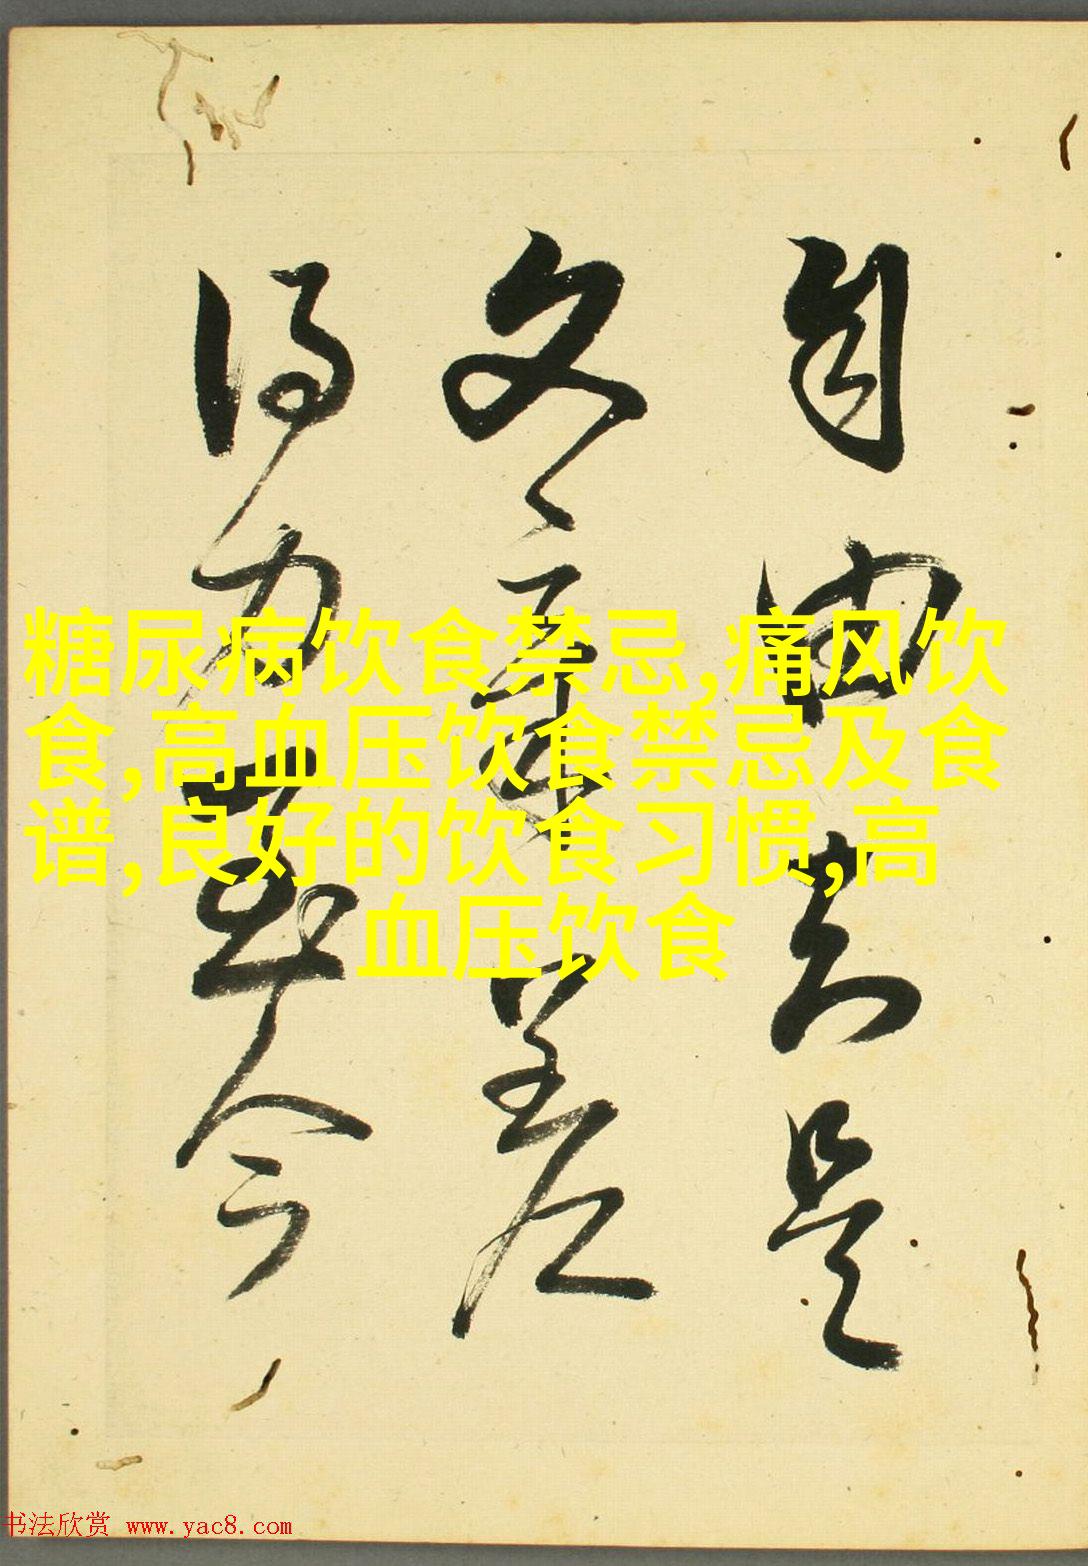 自由去是
文章差
得力
今
糖尿病饮食禁忌,痛风饮
食,高血压饮食禁忌及食
谱,良好的饮食习惯,高
血压饮食
书法欣赏 www.yac8.com